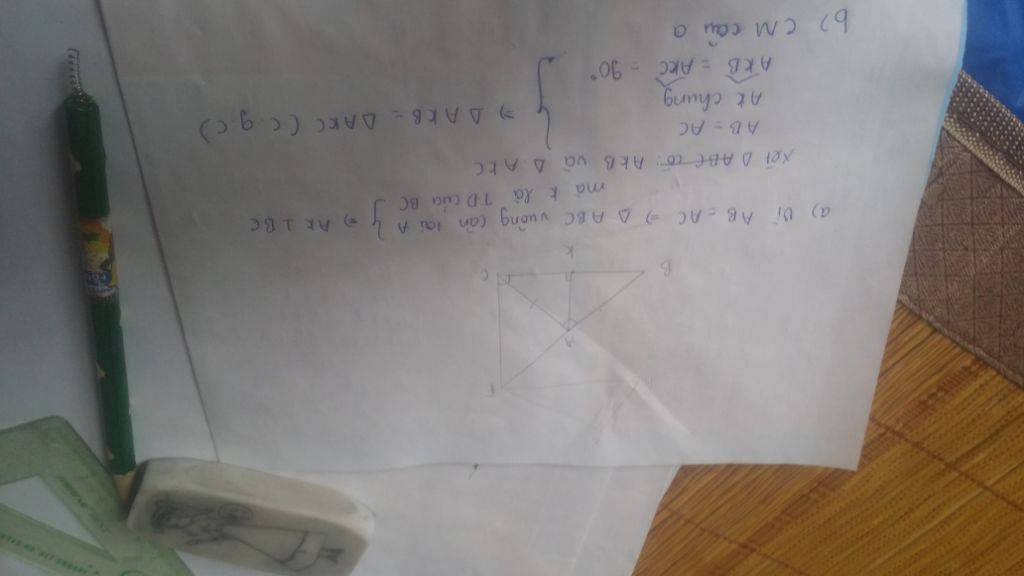 A
B
K
C
a) Vì AB = AC => Δ ABC vuông cân tại A } => AK ⊥ BC
mà K là TĐ của BC
Xét Δ ABC có: AKB và Δ AKC
AB = AC
AK chung
AKB = AKC = 90°
} => Δ AKB = Δ AKC (c.g.c)
b) CM câu a